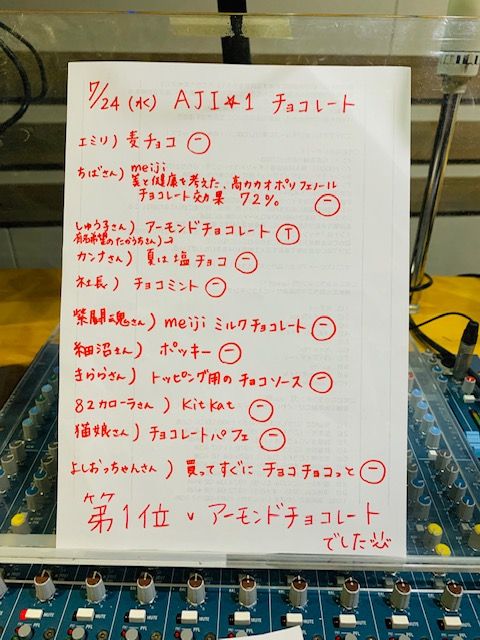 7/24 (水) AJI☆1 チョコレート
エミリ) 麦チョコ ㊀
ちばさん) meiji
美と健康を考えた、高カカオポリフェノール
チョコレート効果 72% ㊀
しゅう子さん) アーモンドチョコレート Ⓣ
有名希望のたかうちさん)→
カンナさん) 夏は塩チョコ ㊀
社長) チョコミント ㊀
紫闘魂さん) meiji ミルクチョコレート ㊀
細沼さん) ポッキー ㊀
きららさん) トッピング用のチョコソース ㊀
82カローラさん) KitKat ㊀
猫娘さん) チョコレートパフェ ㊀
よしおっちゃんさん) 買ってすぐに チョコチョコっと ㊀
第1位、アーモンドチョコレート
でした
MUTE MUTE MUTE MUTE MUTE
PFL PFL PFL PFL